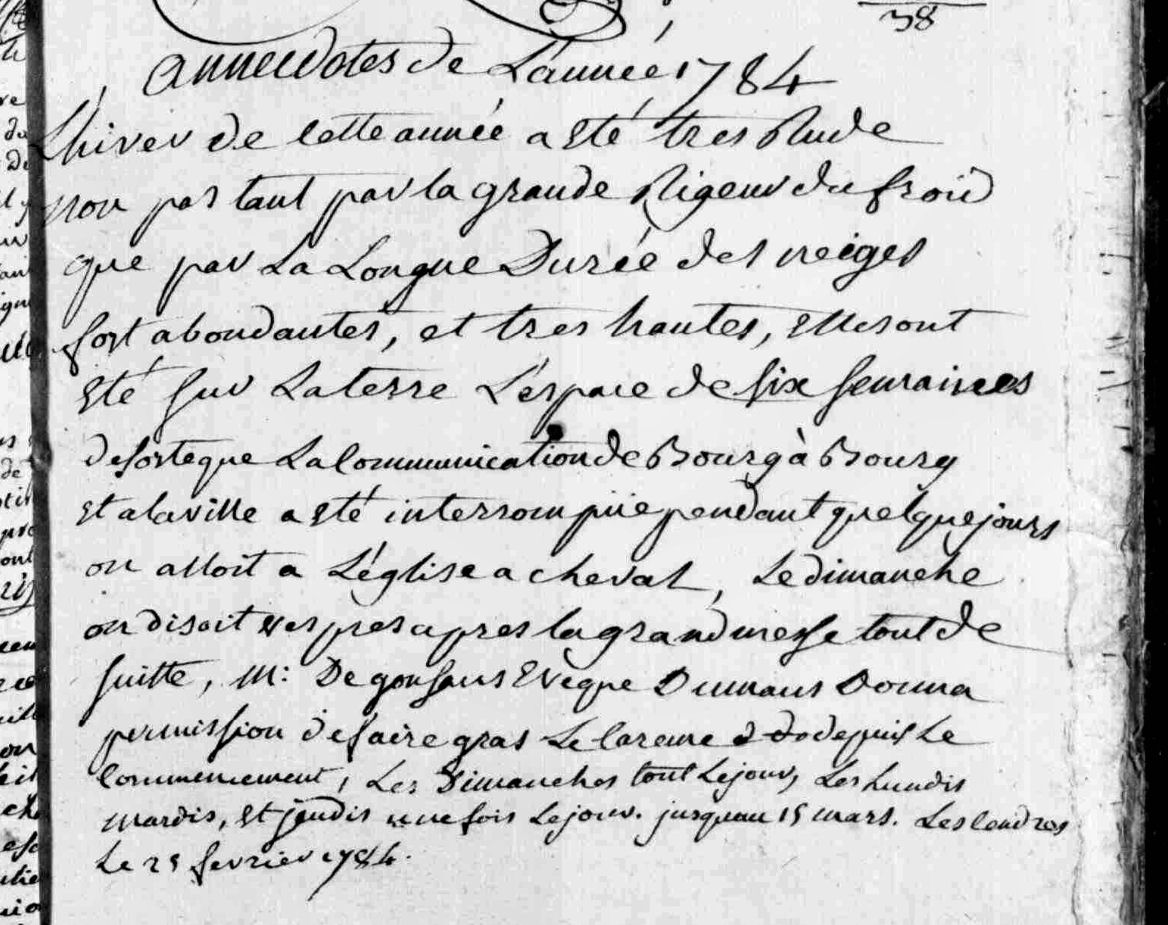 38
anneedotes de L'année 1784
L'hiver de cette année a eté tres Rude
non pas tant par la grande Rigeur du froid
que par La Longue Durée des neiges
fort abondantes, et tres hautes, elles ont
eté sur La terre L'espace de six semaines
de sorte que La Communication de Bourg à Bourg
et a la ville a eté interrompüe pendant quelque jours
on alloit a L'église a cheval, Le dimanche
on disoit vespres apres la grand messe tout de
suitte, M: De gonsans Eveque Dumans Donna
permission de faire gras Le Careme depuis Le
Commencement, Les Dimanches tout Le jour, Les Lundis
mardis, et jeudis une fois Le jour. jusqu'au 15 mars. Les Cendres
Le 25 fevrier 1784.